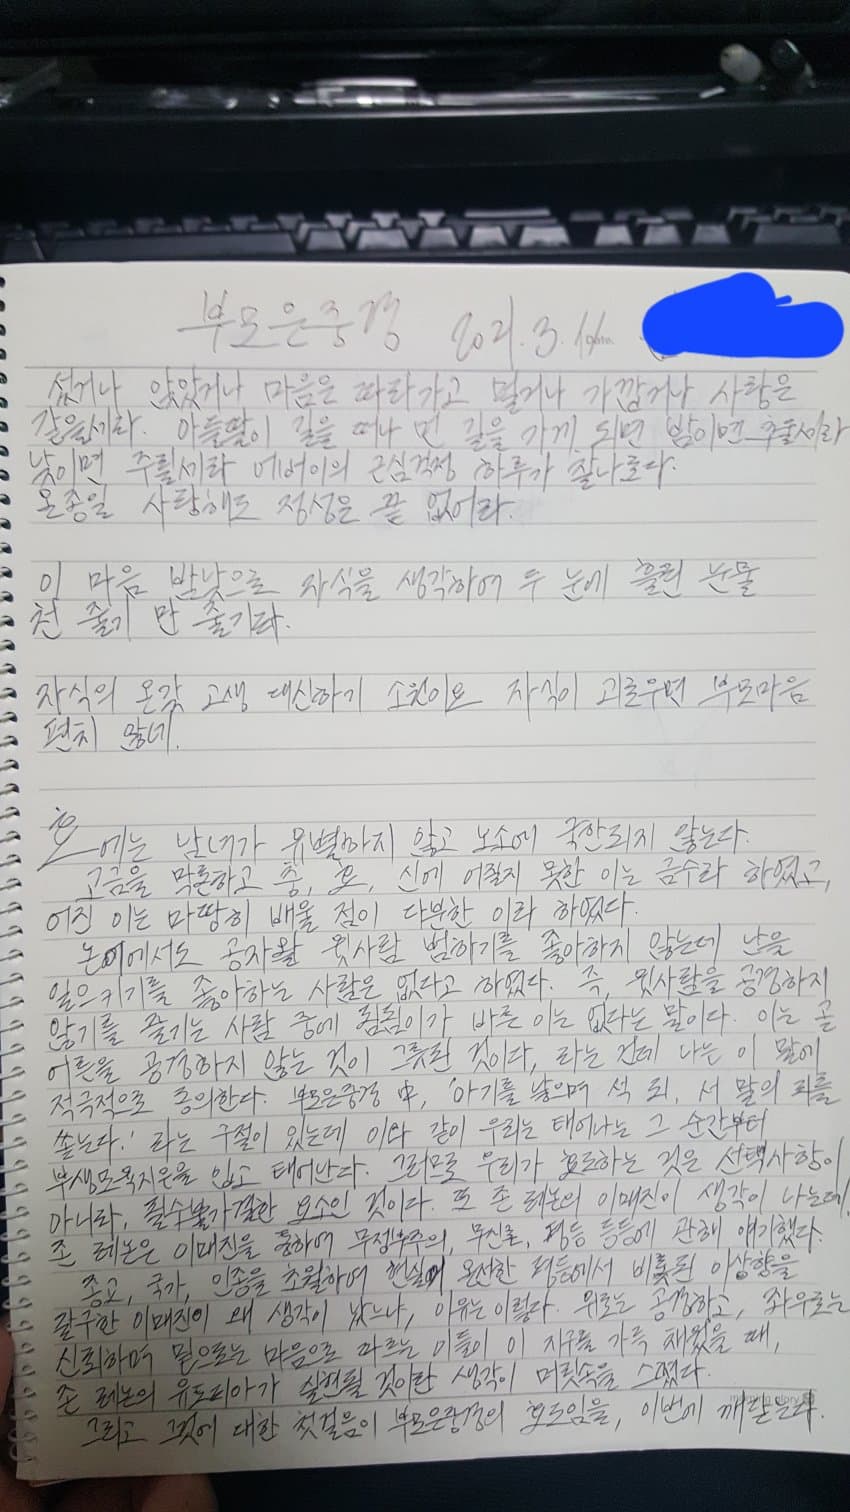 부모은중경 2021. 3.
섰거나 앉았거나 마음은 따라가고 멀거나 가깝거나 사랑은
같을세라. 아들딸이 길을 떠나 먼 길을 가게 되면 밤이면 추울세라
낮이면 주릴세라 어버이의 근심걱정 하루가 찰나로다.
온종일 사랑해도 정성은 끝 없어라.
이 마음 밤낮으로 자식을 생각하여 두 눈에 흘린 눈물
천 줄기 만 줄기다.
자식의 온갖 고생 대신하기 소원이요 자식이 괴로우면 부모마음
편치 않네.
효에는 남녀가 유별하지 않고 노소에 국한되지 않는다.
고금을 막론하고 충, 효, 신에 어질지 못한 이는 금수라 하였고,
어진 이는 마땅히 배울 점이 다분한 이라 하였다.
논어에서도 공자왈 윗사람 범하기를 좋아하지 않는데 난을
일으키기를 좋아하는 사람은 없다고 하였다. 즉, 윗사람을 공경하지
않기를 즐기는 사람 중에 됨됨이가 바른 이는 없다는 말이다. 이는 곧
어른을 공경하지 않는 것이 그릇된 것이다, 라는 건데 나는 이 말에
적극적으로 동의한다. 부모은중경 中, '아기를 낳으며 석 되, 서 말의 피를
쏟는다.' 라는 구절이 있는데 이와 같이 우리는 태어나는 그 순간부터
부생모육지은을 입고 태어난다. 그러므로 우리가 효도하는 것은 선택사항이
아니라, 필수불가결한 요소인 것이다. 또 존 레논의 이매진이 생각이 나는데,
존 레논은 이매진을 통하여 무정부주의, 무신론, 평등 등등에 관해 얘기했다.
종교, 국가, 인종을 초월하여 완전한 평등에서 비롯된 이상향을
갈구한 이매진이 왜 생각이 났느냐, 이유는 이렇다. 위로는 공경하고, 좌우로는
신뢰하며 밑으로는 마음으로 따르는 이들이 이 지구를 가득 채웠을 때,
존 레논의 유토피아가 실현될 것이란 생각이 머릿속을 스쳤다.
그리고 그것에 대한 첫걸음이 부모은중경의 효도임을, 이번에 깨닫는다.